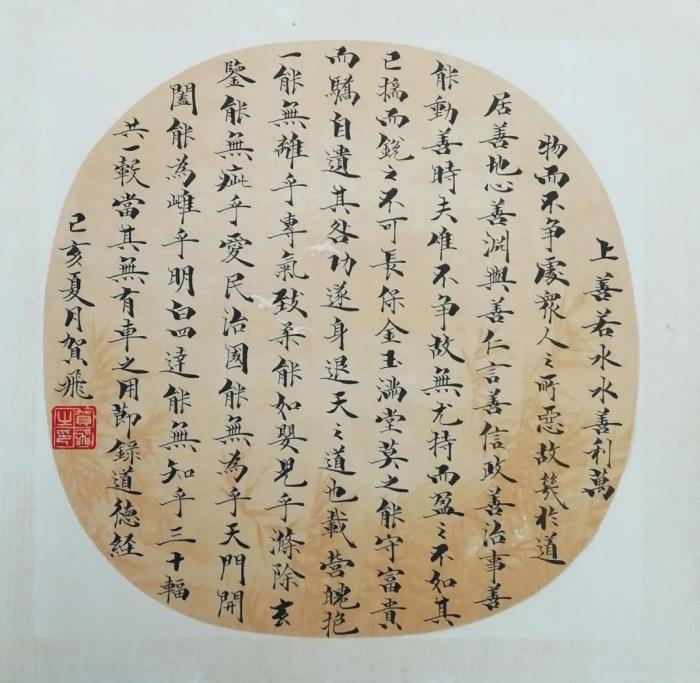 上善若水水善利萬
物而不争處衆人之所惡故幾於道
居善地心善淵與善仁言善信政善治事善
能動善時夫唯不争故無尤持而盈之不如其
已揣而銳之不可長保金玉滿堂莫之能守富貴
而驕自遺其咎功遂身退天之道也載营魄抱
一能無離乎專氣致柔能如嬰兒乎滌除玄
鑒能無疵乎愛民治國能無為乎天門開
闔能為雌乎明白四達能無知乎三十輻
共一轂當其無有車之用節錄道德経
己亥夏月賀飛
賀飛之印